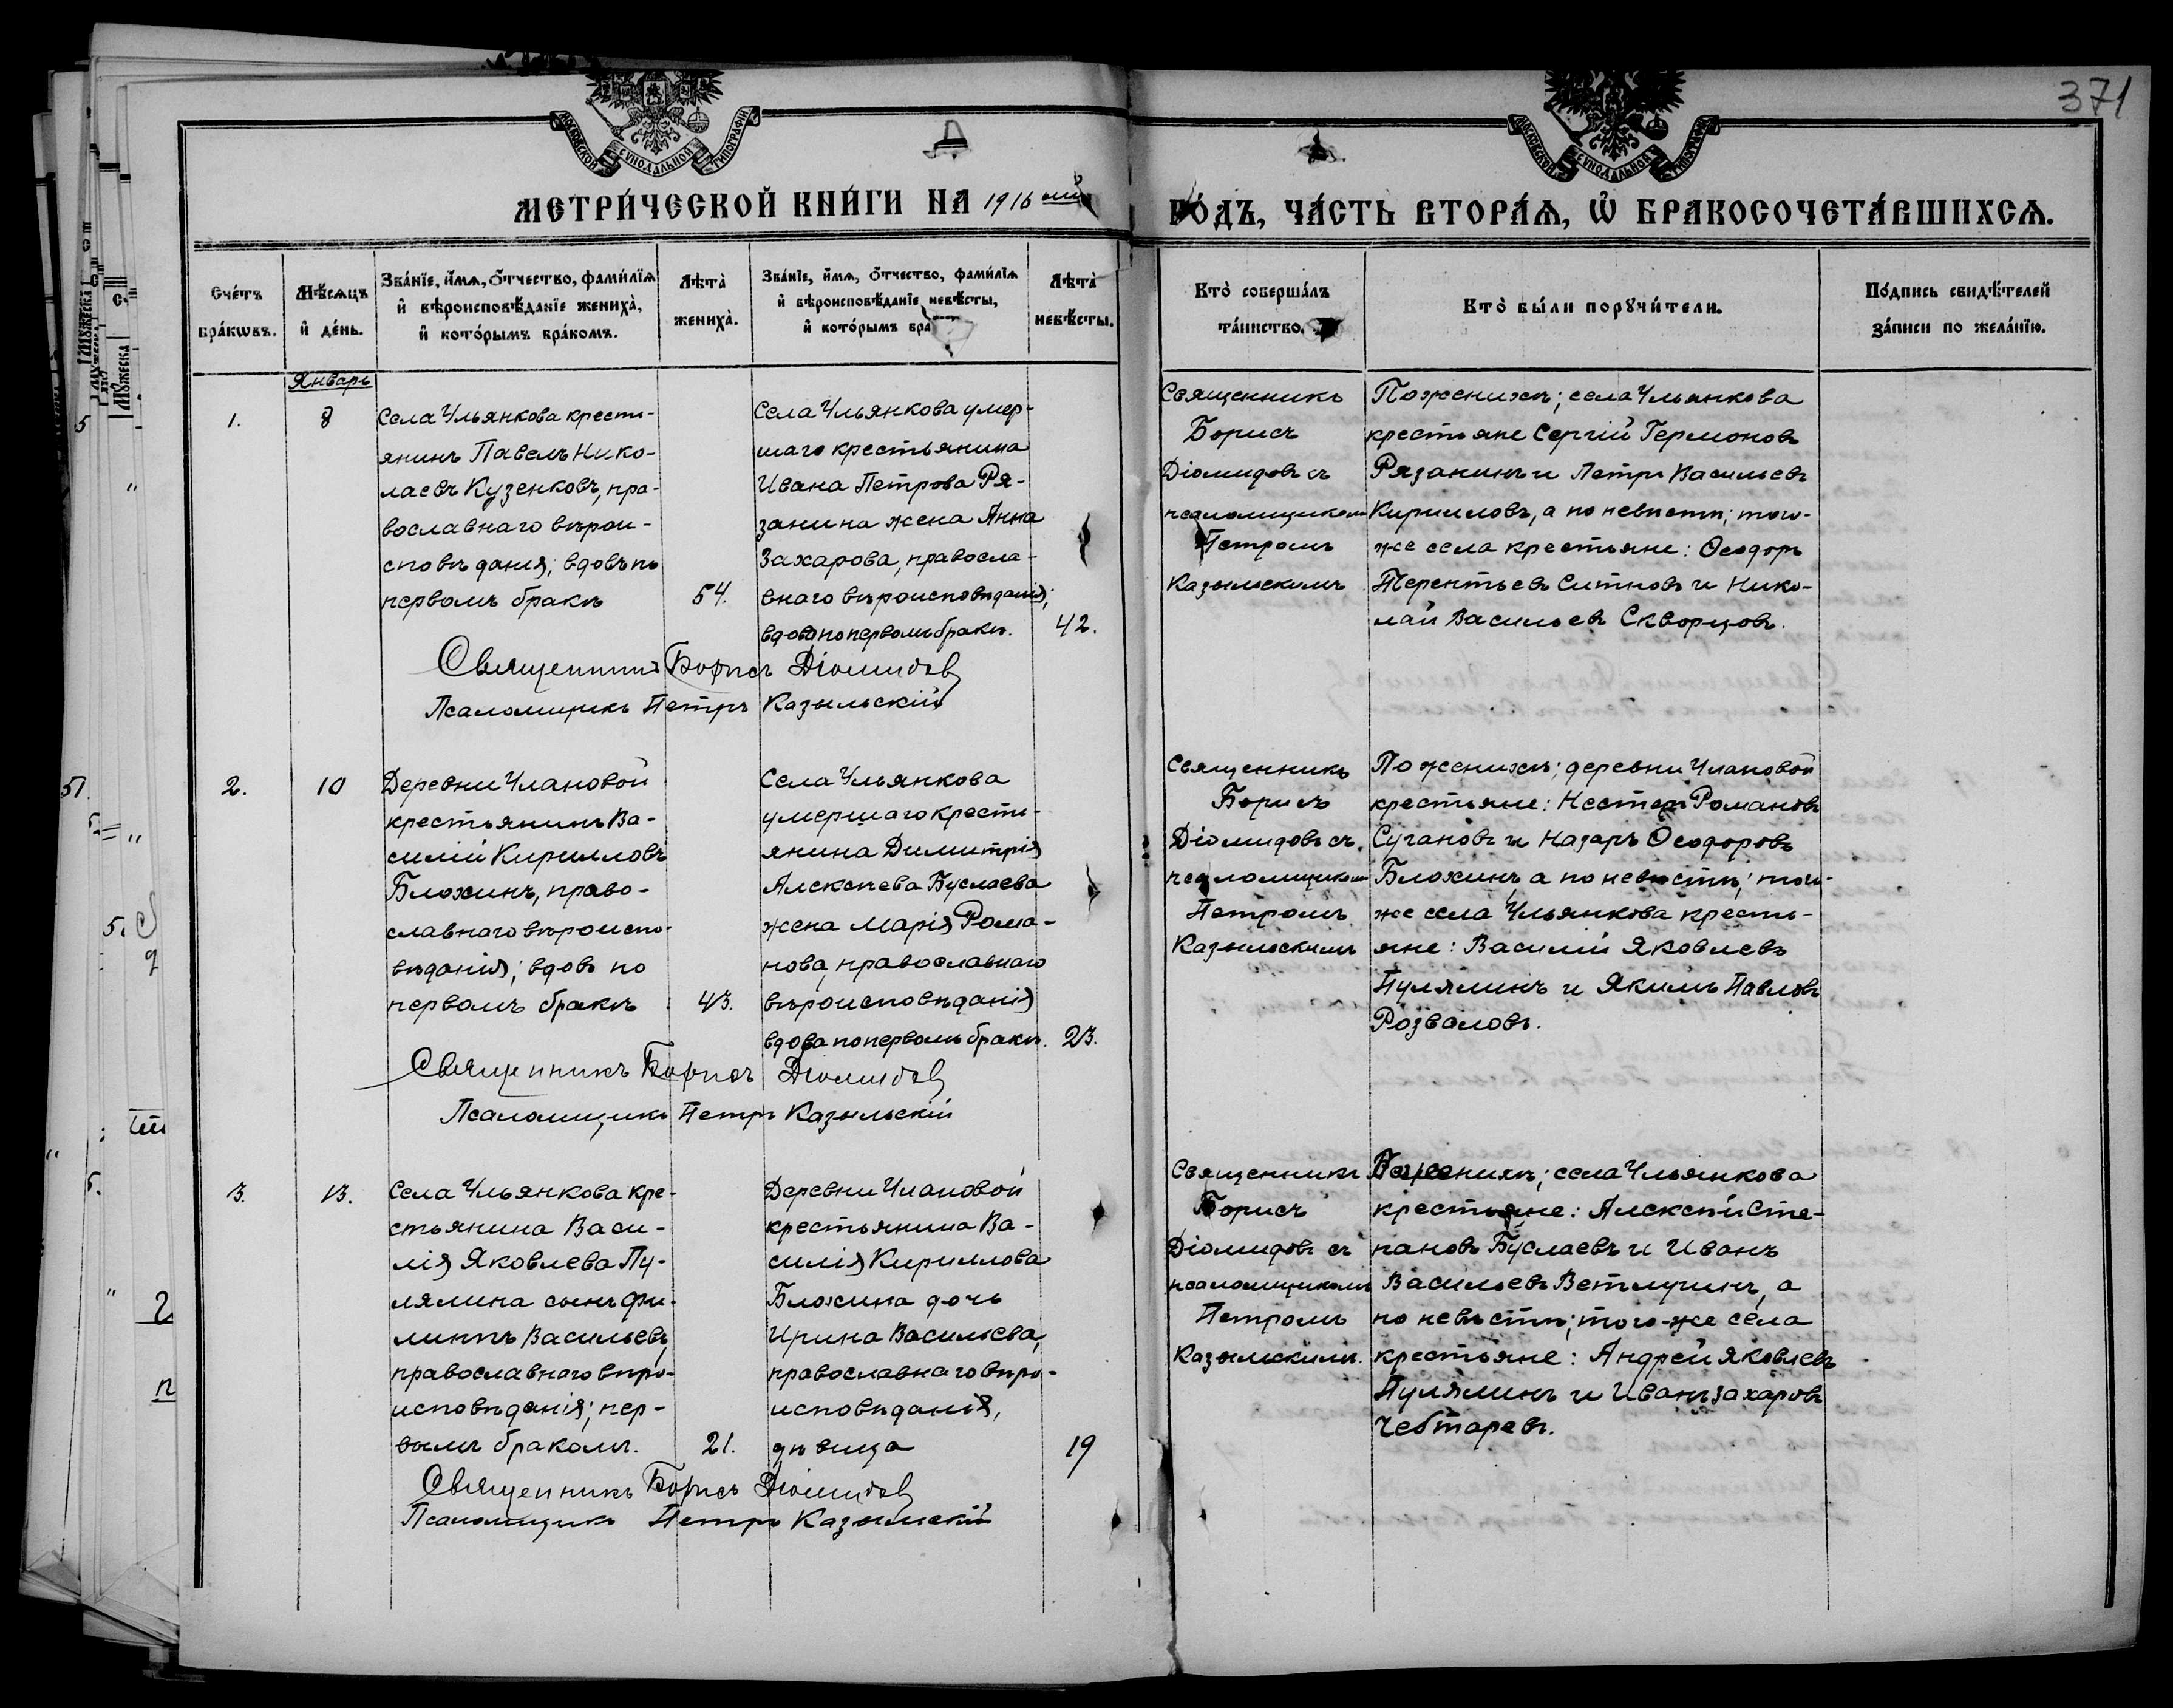 371
МОСКОВСКОЙ СѴНОДАЛЬНОЙ ТИПОГРАФІИ
МОСКОВСКОЙ СѴНОДАЛЬНОЙ ТИПОГРАФІИ
МЕТРИ́ЧЕСКОЙ КНИ́ГИ НА 1916 ый
ГО́ДЪ, ЧА́СТЬ ВТОРА́Ѧ, Ѽ БРАКОСОЧЕТА́ВШИХСѦ.
Сче́тъ
бра́кѡвъ.
Мѣ́сѧцъ
и҆ де́нь.
Зва́нїе, и҆́мѧ, ѻ҆́тчество, фами́лїѧ
и҆ вѣроисповѣ́данїе жениха̀,
и҆ кото́рымъ бра́комъ.
Лѣта̀
жениха̀.
Зва́нїе, и҆́мѧ, ѻ҆́тчество, фами́лїѧ
и҆ вѣроисповѣ́данїе невѣ́сты,
и҆ кото́рымъ бра
Лѣта̀
невѣ́сты.
Кто̀ соверша́лъ
та́инство.
Кто̀ бы́ли порꙋчи́тели.
По́дпись свидѣ́телей
за́писи по жела́нїю.
Январь
1.
8
Села Ульянкова крестьянинъ
янинъ Павелъ Нико-
лаевъ Кузенковъ, пра-
вославнаго вѣрои-
сповѣданія; вдовъ по
первомъ бракѣ
54.
Села Ульянкова умер-
шаго крестьянина
Ивана Петрова Ря-
занина жена Анна
Захарова, правосла-
внаго вѣроисповѣданія;
вдова по первомъ бракѣ.
42.
Священникъ
Борисъ
Діомидовъ съ
псаломщикомъ
Петромъ
Казыльскимъ
По женихѣ; села Ульянкова
крестьяне Сергій Гермоновъ
Рязанинъ и Петръ Васильевъ
Кирилловъ, а по невѣстѣ; того-
же села крестьяне: Ѳеодоръ
Терентьевъ Ситновъ и Нико-
лай Васильевъ Скворцовъ.
Священникъ Борисъ Діомидовъ
Псаломщикъ Петръ Казыльскій
2.
10
Деревни Улановой
крестьянинъ Ва-
силій Кирилловъ
Блохинъ, право-
славнаго вѣроиспо-
вѣданія; вдовъ по
первомъ бракѣ
43.
Села Ульянкова
умершаго кресть-
янина Димитрія
Алексѣева Буслаева
жена Марія Рома-
нова, православнаго
вѣроисповѣданія
вдова по первомъ бракѣ.
23.
Священникъ
Борисъ
Діомидовъ съ
псаломщикомъ
Петромъ
Казыльскимъ
По женихѣ; деревни Улановой
крестьяне: Несторъ Романовъ
Сугановъ и Назаръ Ѳеодоровъ
Блохинъ, а по невѣстѣ; того-
же села Ульянкова кресть-
яне: Василій Яковлевъ
Пулялинъ и Якимъ Павловъ
Розваловъ.
Священникъ Борисъ Діомидовъ
Псаломщикъ Петръ Казыльскій
3.
13.
Села Ульянкова кре-
стьянина Васи-
лія Яковлева Пу-
лялина сынъ Фи-
липпъ Васильевъ,
православнаго вѣро-
исповѣданія; пер-
вымъ бракомъ.
21.
Деревни Улановой
крестьянина Ва-
силія Кириллова
Блохина дочь
Ирина Васильева,
православнаго вѣро-
исповѣданія,
дѣвица
19
Священникъ
Борисъ
Діомидовъ съ
псаломщикомъ
Петромъ
Казыльскимъ.
По женихѣ; села Ульянкова
крестьяне: Алексѣй Сте-
пановъ Буслаевъ и Иванъ
Васильевъ Ветлугинъ, а
по невѣстѣ; того-же села
крестьяне: Андрей Яковлевъ
Пулялинъ и Иванъ Захаровъ
Чеботаревъ.
Священникъ Борисъ Діомидовъ
Псаломщикъ Петръ Казыльскій